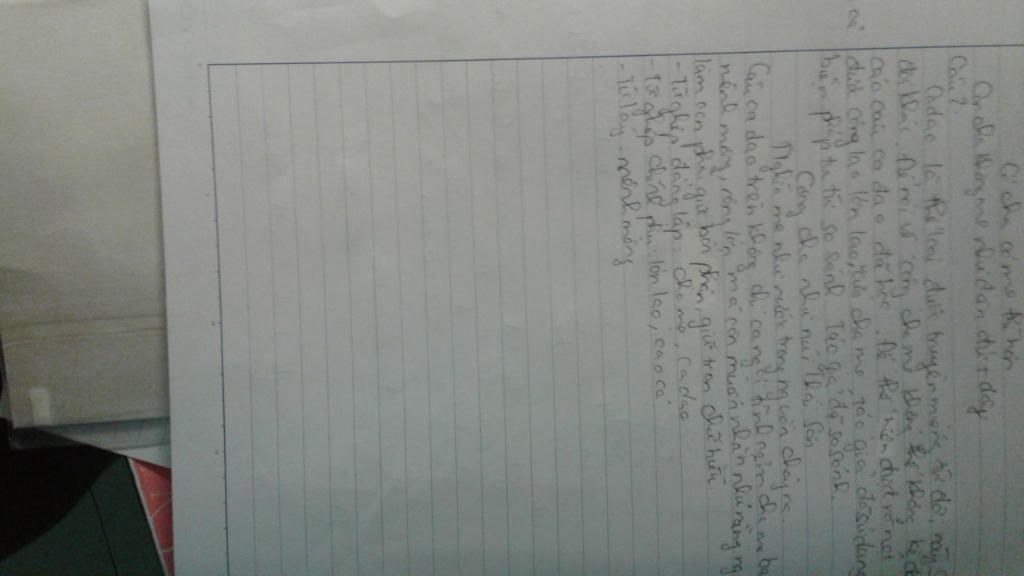 cả
Có cha có mẹ thì hơn
không cha không mẹ như đàn đứt dây
Câu 7
Ca dao là thể loại được truyền miệng từ đời này
đời khác. Đề mục về công cha mẹ không kể
các câu ca dao đã học. Để thể hiện được rõ nét
được công lao lớn lao, của cha mẹ, tác giả đã sử dụng
biện pháp tu từ so sánh. Tác giả đã so sánh.
Công cha như núi Thái Sơn
Nghĩa mẹ như nước trong nguồn chảy ra.
Câu ca dao trên không chỉ ca ngợi tình nghĩa cha mẹ bao
mênh mông, rộng lớn mà còn muốn nhắn nhủ rằng
làm con phải giữ bổn phận, giữ tròn chữ hiếu.
- Từ ghép đẳng lập: cha mẹ, ca dao
- Từ ghép chính phụ: lớn lao, cao cả
- Từ láy: mênh mông